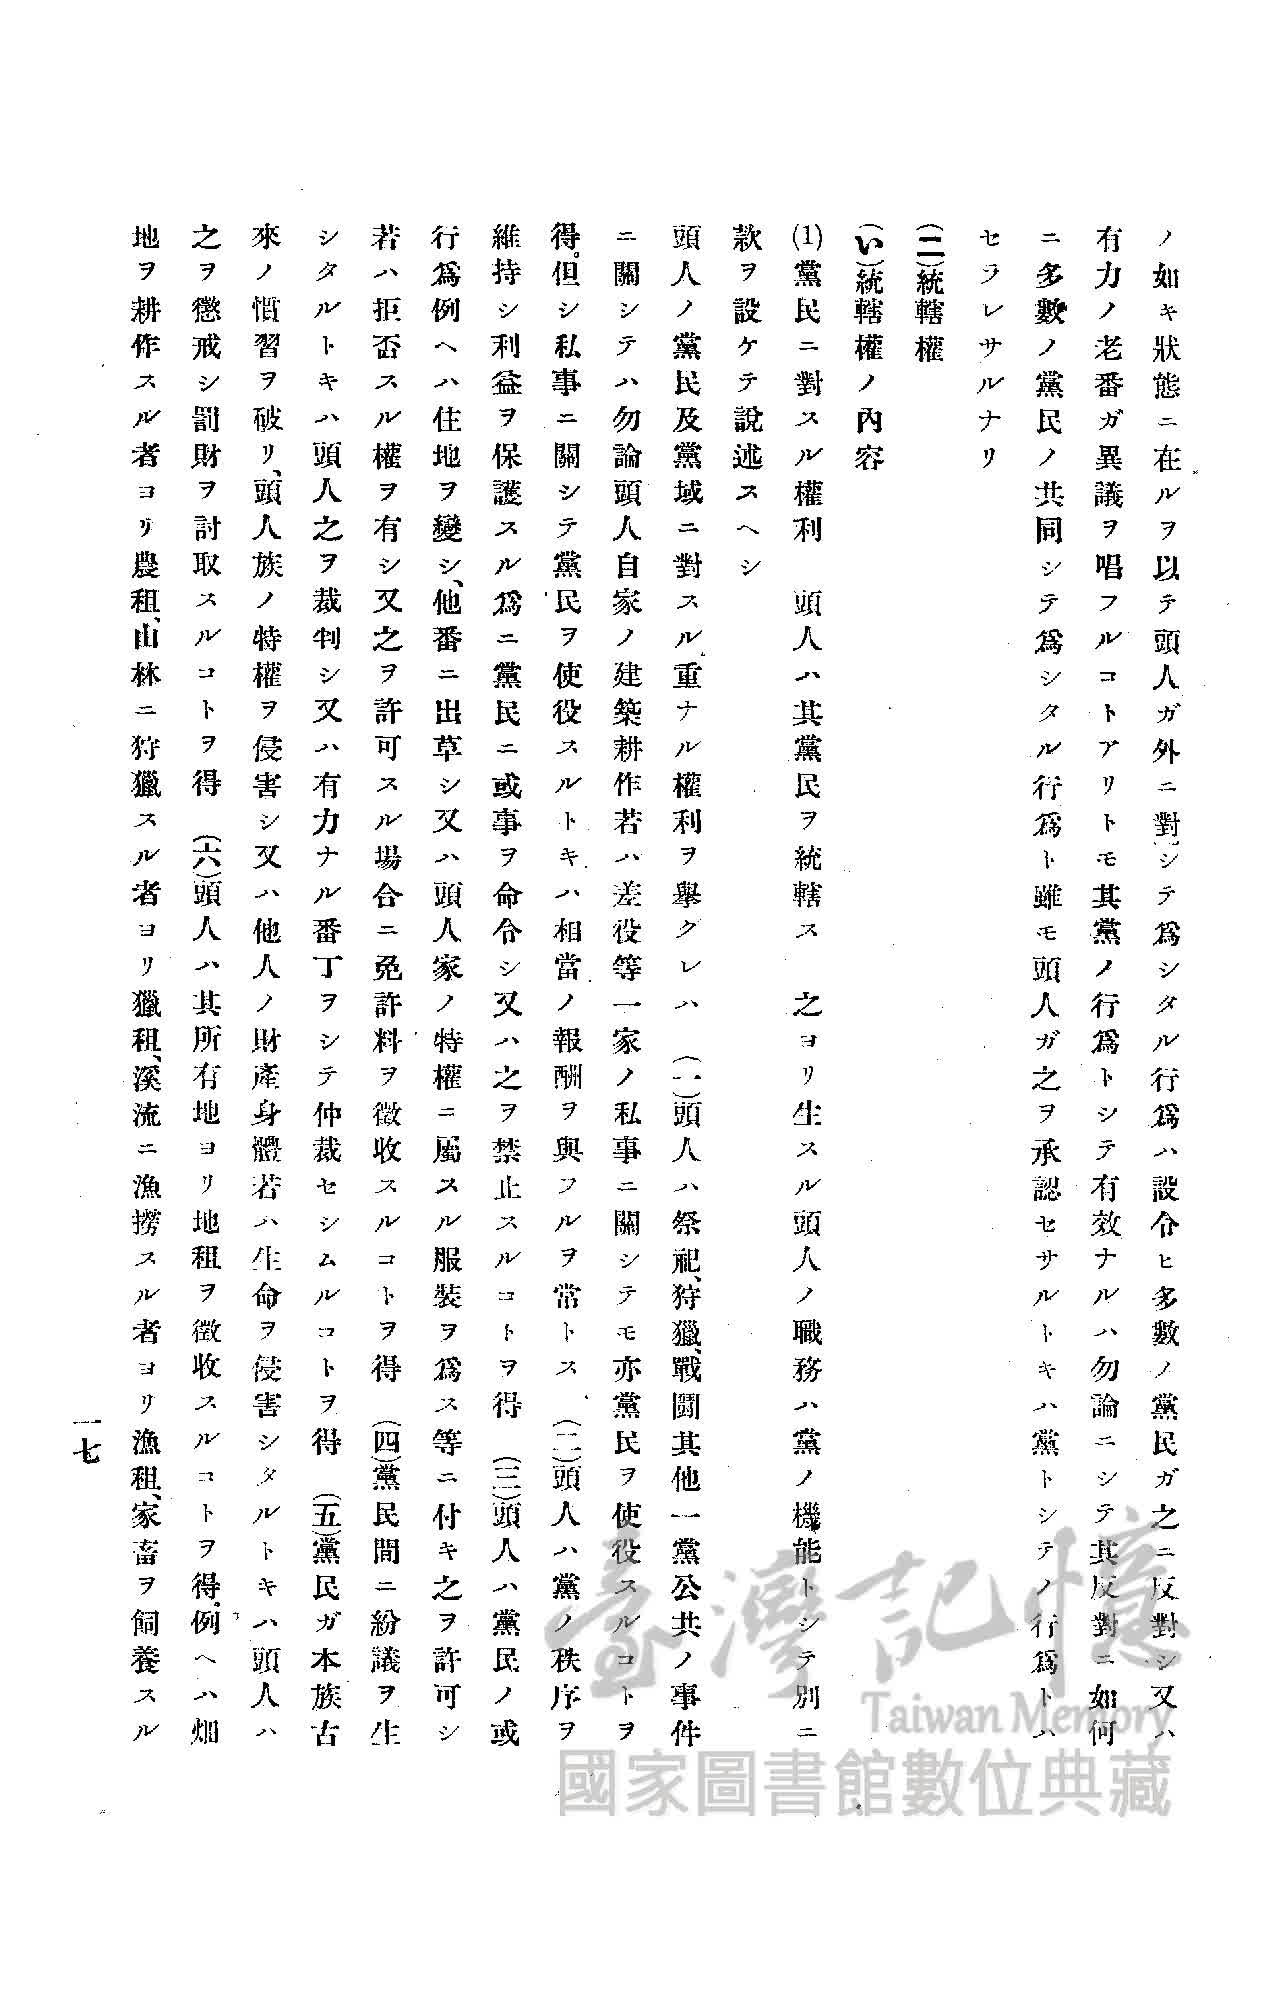 ノ如キ狀態ニ在ルヲ以テ頭人ガ外ニ對シテ爲シタル行爲ハ設令ヒ多數ノ黨民ガ之ニ反對シ又ハ
有力ノ老番ガ異議ヲ唱フルコトアリトモ其黨ノ行爲トシテ有效ナルハ勿論ニシテ其反對ニ如何
ニ多數ノ黨民ノ共同シテ爲シタル行爲ト雖モ頭人ガ之ヲ承認セサルトキハ黨トシテノ行爲トハ
セラレサルナリ
(二)統轄權
(い)統轄權ノ內容
(1)黨民ニ對スル權利　頭人ハ其黨民ヲ統轄ス　之ヨリ生スル頭人ノ職務ハ黨ノ機能トシテ別ニ
款ヲ設ケテ說述スヘシ
頭人ノ黨民及黨域ニ對スル重ナル權利ヲ擧クレハ　(一)頭人ハ祭祀、狩獵、戰鬪其他一黨公共ノ事件
ニ關シテハ勿論頭人自家ノ建築耕作若ハ差役等一家ノ私事ニ關シテモ亦黨民ヲ使役スルコトヲ
得。但シ私事ニ關シテ黨民ヲ使役スルトキハ相當ノ報酬ヲ與フルヲ常トス　(二)頭人ハ黨ノ秩序ヲ
維持シ利益ヲ保護スル爲ニ黨民ニ或事ヲ命令シ又ハ之ヲ禁止スルコトヲ得　(三)頭人ハ黨民ノ或
行爲例ヘハ住地ヲ變シ、他番ニ出草シ又ハ頭人家ノ特權ニ屬スル服裝ヲ爲ス等ニ付キ之ヲ許可シ
若ハ拒否スル權ヲ有シ又之ヲ許可スル場合ニ免許料ヲ徵收スルコトヲ得　(四)黨民間ニ紛議ヲ生
シタルトキハ頭人之ヲ裁判シ又ハ有力ナル番丁ヲシテ仲裁セシムルコトヲ得　(五)黨民ガ本族古
來ノ慣習ヲ破リ、頭人族ノ特權ヲ侵害シ又ハ他人ノ財產身體若ハ生命ヲ侵害シタルトキハ頭人ハ
之ヲ懲戒シ罰財ヲ討取スルコトヲ得　(六)頭人ハ其所有地ヨリ地租ヲ徵收スルコトヲ得。例ヘハ畑
地ヲ耕作スル者ヨリ農租、山林ニ狩獵スル者ヨリ獵租、溪流ニ漁撈スル者ヨリ漁租、家畜ヲ飼養スル
一七
臺灣記憶
Taiwan Memory
國家圖書館數位典藏